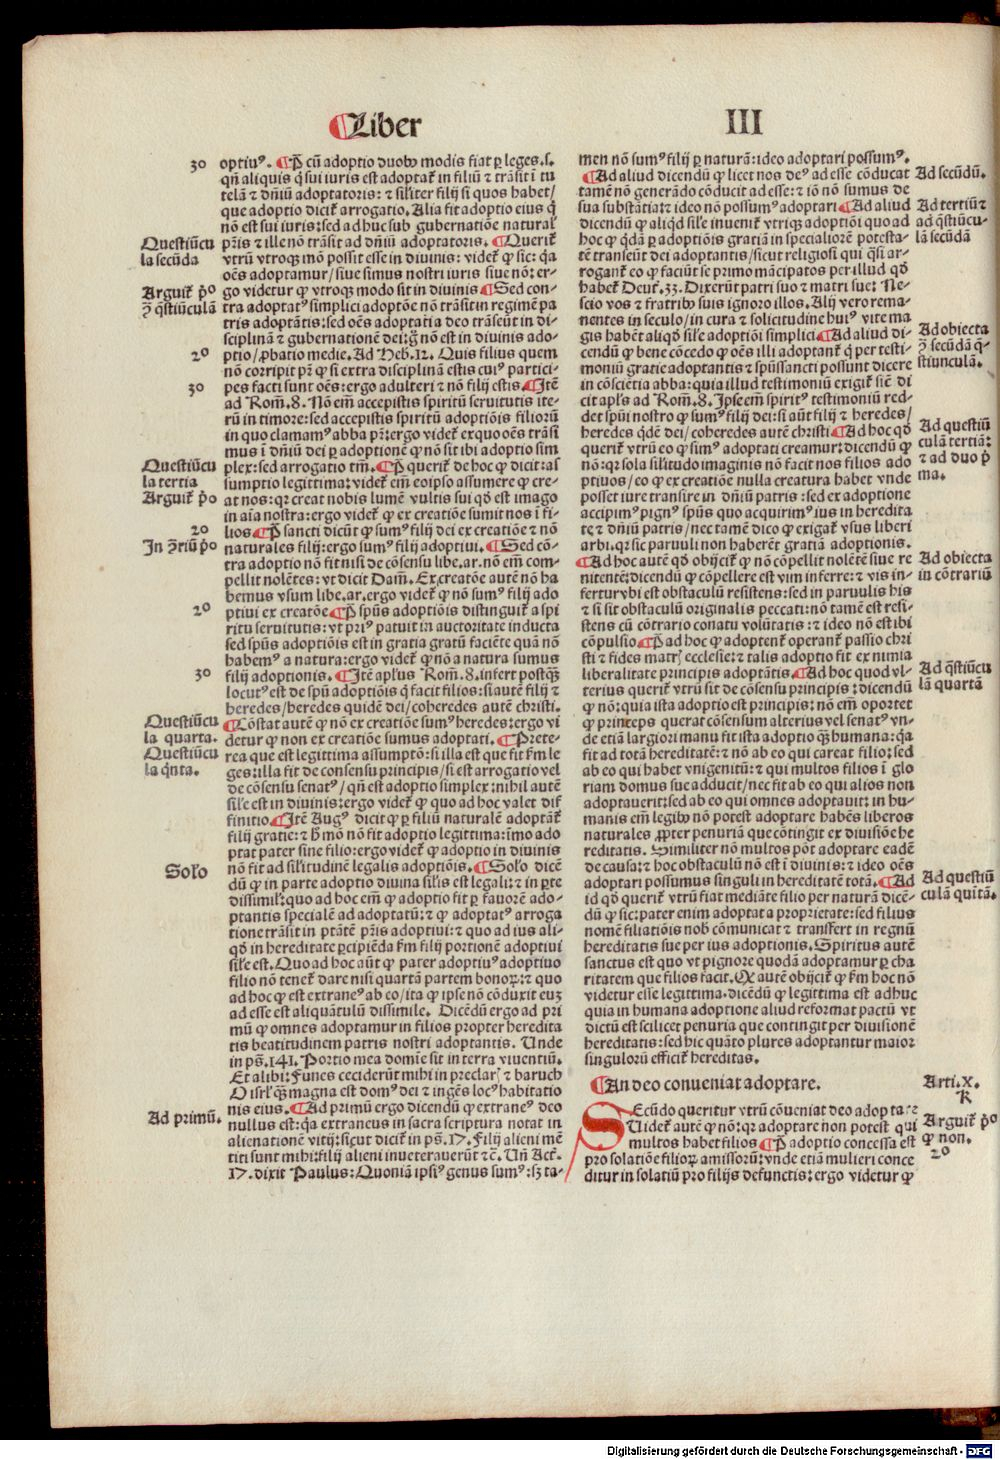 Liber
III
30 optiuꝰ. ¶ P̄ cū adoptio duobꝫ modis fiat ꝑ leges. s.
qn̄ aliquis q̄ sui iuris est adoptat᷑ in filiū ⁊ trāsit ī tu
telā ⁊ dn̄iū adoptatoris: ⁊ sil'iter filij si quos habet/
que adoptio dicit᷑ arrogatio. Alia fit adoptio eius q̄
nō est sui iuris: sed adhuc sub gubernatiōe natural'
Questiūcu
la secūda
pr̄is ⁊ ille nō trāsit ad dn̄iū adoptatoris. ¶ Querit᷑
vtrū vtroqꝫ mō possit esse in diuinis: videt᷑ ꝙ sic: q̄a
oēs adoptamur/ siue simus nostri iuris siue nō: er-
Arguit᷑ pº
ꝯ q̄stiūculā
go videtur ꝙ vtroqꝫ modo sit in diuinis ¶ Sed con-
tra adoptatꝰ simplici adoptōe nō trāsit in regimē pa
tris adoptātis: sed oēs adoptati a deo trāseūt in di-
sciplinā ⁊ gubernationē dei: g̊ nō est in diuinis ado-
2º
ptio/ ꝓbatio medie. Ad Heb. 12. Quis filius quem
nō corripit pr̄ ꝙ si extra disciplinā estis cuiꝰ partici-
30
pes facti sunt oēs: ergo adulteri ⁊ nō filij estis. ¶ Itē
ad Rom̄. 8. Nō em̄ accepistis spiritū seruitutis ite-
rū in timore: sed accepistis spiritū adoptiōis filiorū
in quo clamamꝰ abba pr̄: ergo videt᷑ ex quo oēs trāsi
mus ī dn̄iū dei ꝑ adoptionē ꝙ nō sit ibi adoptio sim
Questiūcu
la tertia
Arguit᷑ pº
plex: sed arrogatio tm̄. ¶ P̄ querit᷑ de hoc ꝙ dicit: as
sumptio legittima: videt᷑ em̄ eoipso assumere ꝙ cre-
at nos: qr creat nobis lumē vultis sui qd̓ est imago
in aīa nostra: ergo videt᷑ ꝙ ex creatiōe sumit nos ī fi-
2º
lios ¶ P̄ sancti dicūt ꝙ sumꝰ filij dei ex creatiōe ⁊ nō
In ꝯ̄riū pº
naturales filij: ergo sumꝰ filij adoptiui. ¶ Sed cō-
tra adoptio nō fit nisi de cōsensu libe. ar. nō em̄ com-
pellit nolētes: vt dicit Dam̄. Ex creatōe autē nō ha
bemus vsum libe. ar. ergo videt᷑ ꝙ nō sumꝰ filij ado
2º
ptiui ex creatōe ¶ P̄ spūs adoptiōis distinguit᷑ a spi
ritu seruitutis: vt priꝰ patuit in auctoritate inducta
sed spūs adoptiōis est in gratia gratū faciēte quā nō
habemꝰ a natura: ergo videt᷑ ꝙ nō a natura sumus
30
filij adoptionis. ¶ Itē apl'us Rom̄. 8. infert postq̄ꝫ
locutꝰ est de spū adoptiōis q̄ facit filios: si autē filij ⁊
heredes/ heredes quidē dei/ coheredes autē christi.
Questiūcu
la quarta.
¶ Cōstat autē ꝙ nō ex creatiōe sumꝰ heredes: ergo vi
detur ꝙ non ex creatiōe sumus adoptati. ¶ Prete-
Questiūcu
la q̄nta.
rea que est legittima assumptō: si illa est que fit ẜm le
ges: illa fit de consensu principis/ si est arrogatio vel
de cōsensu senatꝰ/ qn̄ est adoptio simplex: nihil autē
sil'e est in diuinis: ergo videt᷑ ꝙ quo ad hoc valet dif
finitio. ¶ Itē Augꝰ dicit ꝙ ꝑ filiū naturalē adoptāt᷑
filij gratie: ⁊ h̓ mō nō fit adoptio legittima: īmo ado
ptat pater sine filio: ergo videt᷑ ꝙ adoptio in diuinis
nō fit ad sil'itudinē legalis adoptiōis. ¶ Solō dicē
Solō
dū ꝙ in parte adoptio diuina sil'is est legali: ⁊ in ꝑte
dissimil': quo ad hoc em̄ ꝙ adoptio fit ꝑ fauorē ado-
ptantis specialē ad adoptatū: ⁊ ꝙ adoptatꝰ arroga
tione trāsit in ptātē pr̄is adoptiui: ⁊ quo ad ius ali-
qd̓ in hereditate ꝑcipiēda ẜm filij portionē adoptiui
sil'e est. Quo ad hoc aūt ꝙ pater adoptiuꝰ adoptiuo
filio nō tenet᷑ dare nisi quartā partem honoꝝ: ⁊ quo
ad hoc ꝙ est extraneꝰ ab eo/ ita ꝙ ipse nō cōduxit euꝫ
ad esse est aliquātulū dissimile. Dicēdū ergo ad pri
mū ꝙ omnes adoptamur in filios propter heredita
tis beatitudinem patris nostri adoptantis. Unde
in ps̄. 141. Portio mea domīe sit in terra viuentiū.
Et alibi: Funes ceciderūt mihi in preclarꝭ ⁊ baruch
O isrl' q̄ꝫ magna est domꝰ dei ⁊ ingēs locꝰ habitatio
nis eius. ¶ Ad primū ergo dicendū ꝙ extraneꝰ deo
Ad primū.
nullus est: q̄a extraneus in sacra scriptura notat in
alienationē vitij: sicut dicit᷑ in ps̄. 17. Filij alieni mē
titi sunt mihi: filij alieni inueterauerūt ⁊c̄. Un̄ Act᷑.
17. dixit Paulus: Quoniā ipsiꝰ genus sumꝰ: sꝫ ta-
men nō sumꝰ filij ꝑ naturā: ideo adoptari possumꝰ.
Ad secūdū.
¶ Ad aliud dicendū ꝙ licet nos deꝰ ad esse cōducat
tamē nō generādo cōducit ad esse: ⁊ iō nō sumus de
Ad tertiū ⁊
ad q̄stiūcu-
la secūdā
sua substātia: ⁊ ideo nō possumꝰ adoptari ¶ Ad aliud
dicendū ꝙ aliqd̓ sil'e inuenit᷑ vtriqꝫ adoptiōi quo ad
hoc ꝙ q̄dā ꝑ adoptiōis gratiā in specialiorē potesta-
tē transeūt dei adoptantis/ sicut religiosi qui q̄si ar-
rogant᷑ eo ꝙ faciūt se primo mācipatos per illud qd̓
habet᷑ Deut᷑. 33. Dixerūt patri suo ⁊ matri sue: Ne-
scio vos ⁊ fratribꝫ suis ignoro illos. Alij vero rema-
nentes in seculo/ in cura ⁊ solicitudine huiꝰ vite ma
Ad obiecta
ꝯ secūdā q̄-
stiunculā.
gis habēt aliqd̓ sil'e adoptiōi simplici ¶ Ad aliud di-
cendū ꝙ bene cōcedo ꝙ oēs illi adoptant᷑ q̄ per testi-
moniū gratie adoptantis ⁊ spūssancti possunt dicere
in cōsciētia abba: quia illud testimoniū exigit᷑ sic̄ di
cit apl's ad Rom̄. 8. Ipse em̄ spiritꝰ testimoniū red-
det spūi nostro ꝙ sumꝰ filij dei: si aūt filij ⁊ heredes/
Ad questiū
culā tertiā:
⁊ ad duo p̄
ma.
heredes q̄dē dei/ coheredes autē christi ¶ Ad hoc qd̓
querit᷑ vtrū eo ꝙ sumꝰ adoptati creamur: dicendū ꝙ
nō: qr sola sil'itudo imaginis nō facit nos filios ado
ptiuos/ eo ꝙ ex creatiōe nulla creatura habet vnde
posset iure transire in dn̄iū patris: sed ex adoptione
accipimꝰ pignꝰ spūs quo acquirimꝰ ius in heredita
te ⁊ dn̄iū patris/ nec tamē dico ꝙ exigat᷑ vsus liberi
arbi. qr sic paruuli non haberēt gratiā adoptionis.
Ad obiecta
in cōtrariū
¶ Ad hoc autē qd̓ obijcit᷑ ꝙ nō cōpellit nolētē siue re
nitentē: dicendū ꝙ cōpellere est vim inferre: ⁊ vis in-
fertur vbi est obstaculū resistens: sed in paruulis his
⁊ si sit obstaculū originalis peccati: nō tamē est resi-
stens cū cōtrario conatu volūtatis: ⁊ ideo nō est ibi
cōpulsio ¶ P̄ ad hoc ꝙ adoptent᷑ operant᷑ passio chri
sti ⁊ fides matrꝭ ecclesie: ⁊ talis adoptio fit ex nimia
Ad q̄stiūcu
lā quartā
liberalitate principis adoptātis. ¶ Ad hoc quod vl-
terius querit᷑ vtrū sit de cōsensu principis: dicendū
ꝙ nō: quia ista adoptio est principis: nō em̄ oportet
ꝙ princeps querat cōsensum alterius vel senatꝰ vn-
de etiā largiori manu fit ista adoptio q̄ꝫ humana: q̄a
fit ad totā hereditatē: ⁊ nō ab eo qui careat filio: sed
ab eo qui habet vnigenitū: ⁊ qui multos filios ī glo
riam domus sue adducit/ nec fit ab eo qui alios non
adoptauerit: sed ab eo qui omnes adoptauit: in hu-
manis em̄ legibꝫ nō potest adoptare habēs liberos
naturales ꝓpter penuriā que cōtingit ex diuisiōe he
reditatis. Similiter nō multos pōt adoptare eadē
de causa: ⁊ hoc obstaculū nō est ī diuinis: ⁊ ideo oēs
Ad questiū
culā quītā.
adoptari possumus singuli in hereditatē totā. ¶ Ad
id qd̓ querit᷑ vtrū fiat mediāte filio per naturā dicē-
dū ꝙ sic: pater enim adoptat a proprietate: sed filius
nomē filiatiōis nob̓ cōmunicat ⁊ transfert in regnū
hereditatis sue per ius adoptionis. Spiritus autē
sanctus est quo vt pignore quodā adoptamur ꝑ cha
ritatem que filios facit. Qꝫ autē obijcit᷑ ꝙ ẜm hoc nō
videtur esse legittima. dicēdū ꝙ legittima est adhuc
quia in humana adoptione aliud reformat pactū vt
dictū est scilicet penuria que contingit per diuisionē
hereditatis: sed hic quāto plures adoptantur maior
singulorū efficit᷑ hereditas.
¶ An deo conueniat adoptare.
Arti. X.
Secūdo queritur vtrū cōueniat deo adoptare
Arguit᷑ pº
ꝙ non.
Uidet᷑ autē ꝙ nō: qr adoptare non potest qui
multos habet filios ¶ P̄ adoptio concessa est
2º
pro solatiōe filioꝝ amissorū: vnde etiā mulieri conce
ditur in solatiū pro filijs defunctis: ergo videtur ꝙ
Digitalisierung gefördert durch die Deutsche Forschungsgemeinschaft - DFG